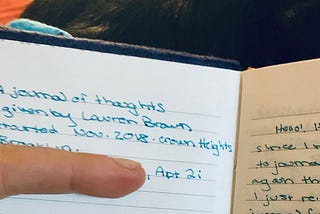 A journal of thoughts
given by Lauren Brown
started Nov. 2018. Crown Heights
Brooklyn.
, Apt 2i
Hello!
since I
to journa
again the
I just re